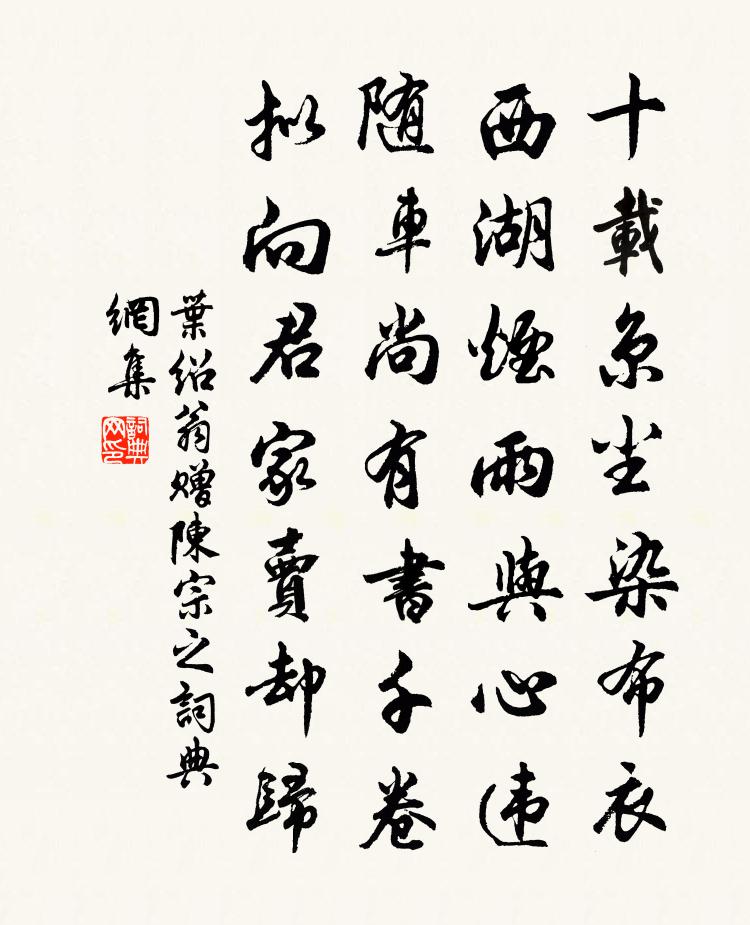 十載京塵染布衣
西湖煙雨與心违
随車尚有書千卷
拟向君家賣却歸
葉绍翁赠陳宗之詞典
網集
詞典
网印